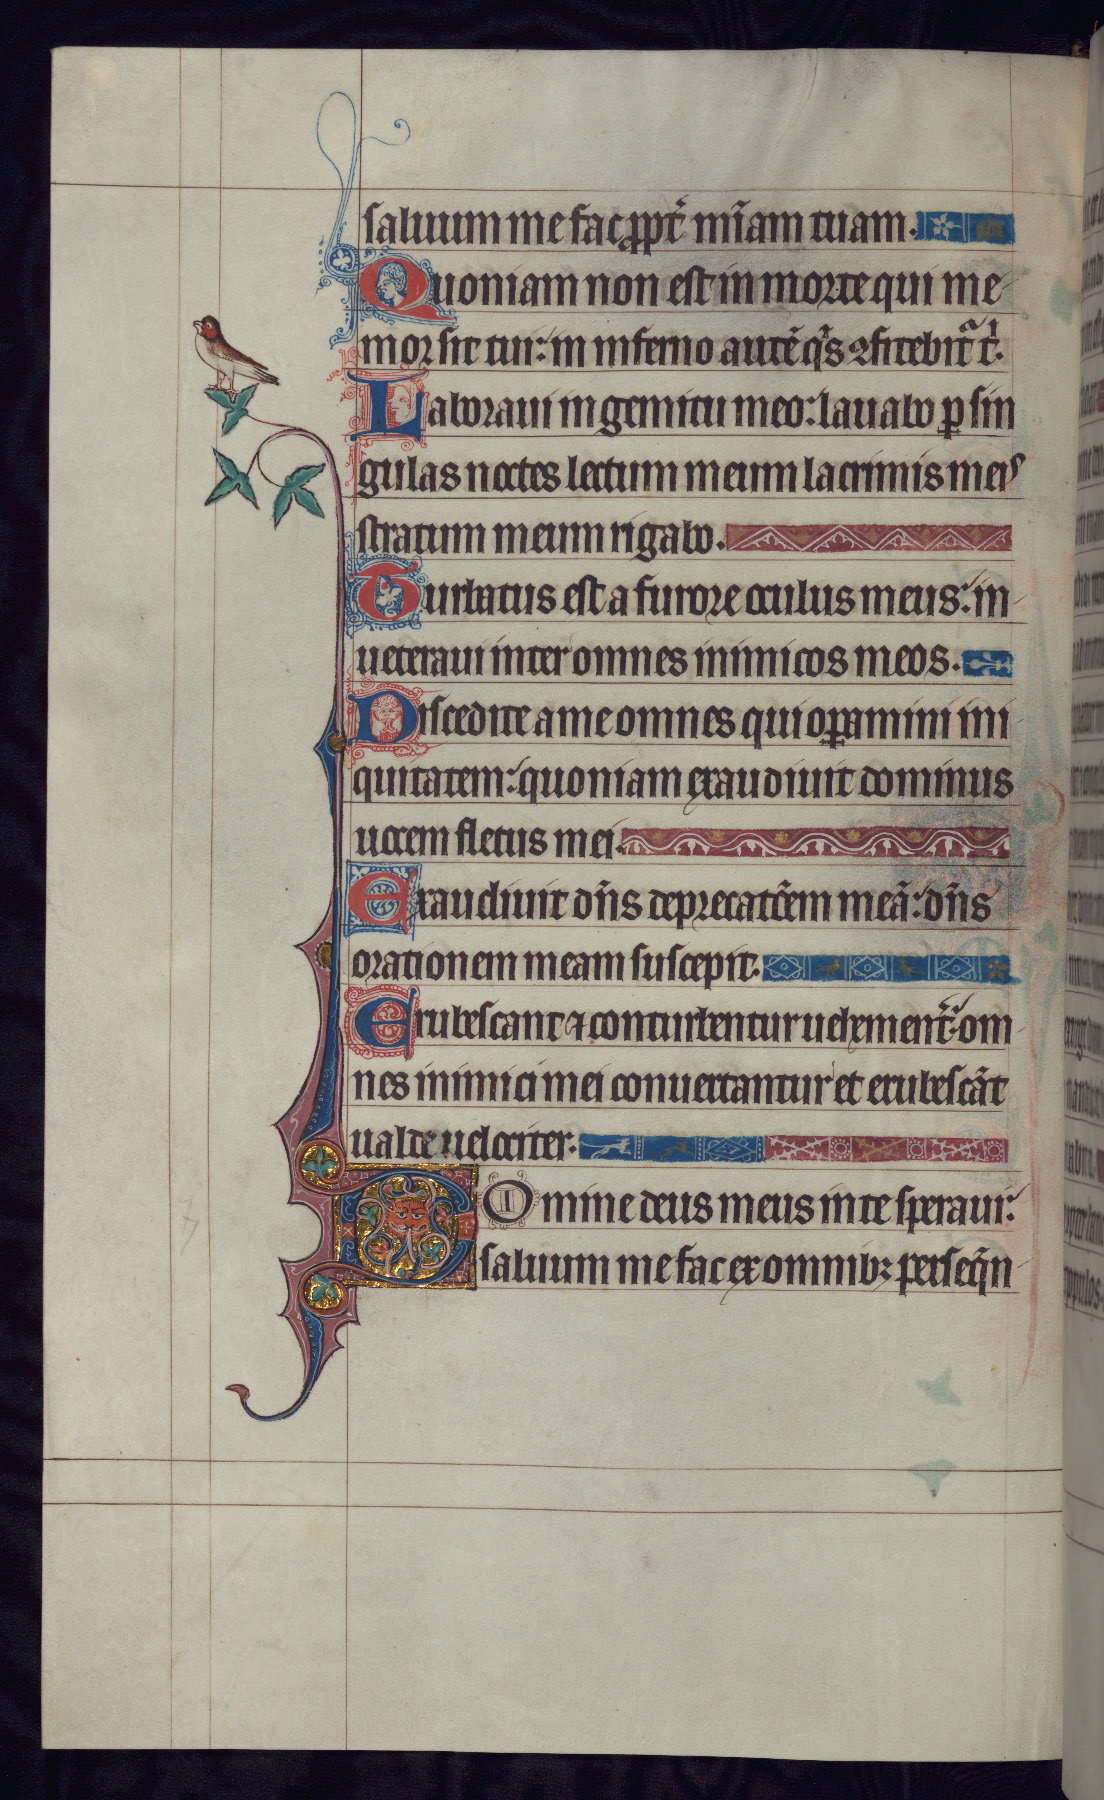 saluum me fac ꝓpt̄ mīam tuam.
Quoniam non est in morte qui me
mor sit tui: in inferno autē q̄s ꝯfitebit᷑ t.
Laboraui in gemitu meo: lauabo ꝑ sin
gulas noctes lectum meum lacrimis meis
stratum meum rigabo.
Turbatus est a furore oculus meus: in
ueteraui inter omnes inimicos meos.
Discedite a me omnes qui oꝑamini ini
quitatem: quoniam exaudiuit dominus
uocem fletus mei.
Exaudiuit dn̄s deprecatōem meā: dn̄s
orationem meam suscepit.
Erubescant ⁊ conturbentur uehement̄: om
nes inimici mei conuertantur et erubescāt
ualde uelociter:
DOmine deus meus in te speraui:
saluum me fac ex omnibꝫ perseq̄n